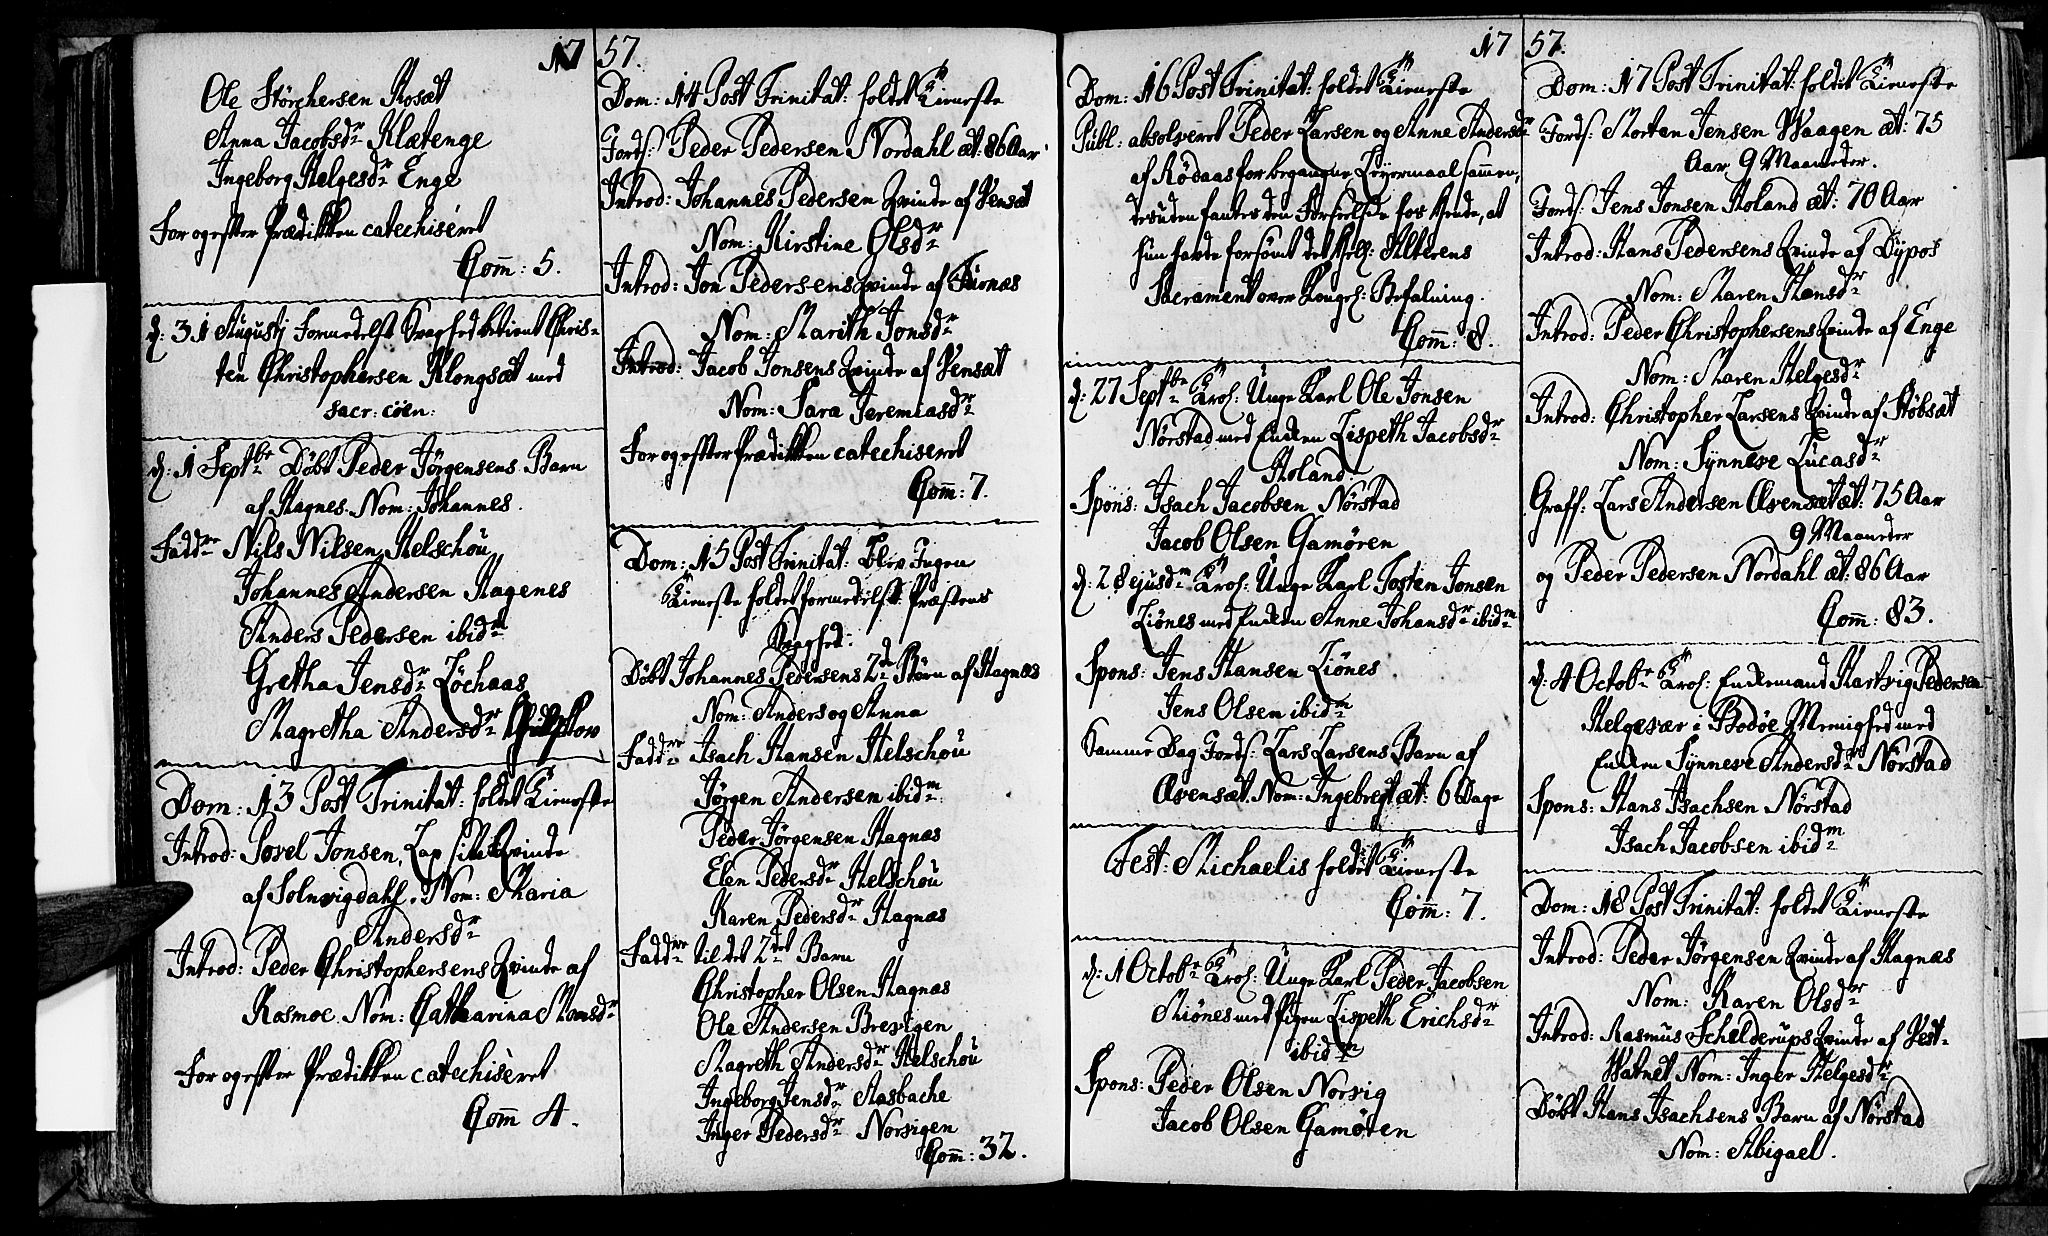 17 57.
Ole Störchersen Rosæt
Anna Jacobsdr Klætenge
Ingeborg Helgesdr Enge
For og efter Prædikken catechiseret
Com̄: 5.
d: 31 Augustj formedelst Svaghed betient Chris-
ten Christophersen Klongsæt med
sacr: cœn:
d: 1 Septbr Döbt Peder Jörgensens Barn
af Hagnes. Nom: Johannes.
Faddre Nils Nilsen Helschou
Johannes Andersen Hagenes
Anders Pedersen ibidm
Gretha Jensdr Löchaas
Magretha Andersdr
Dom: 13 Post Trinitat: holdet Kirneste
Introd: Povel Jonsen, Lap sin Qvinde
af Solnvigdahl. Nom: Maria
Andersdr
Introd: Peder Christophersens Qvinde af
Rasmoe. Nom: Catharina Monsdr
For og efter Prædikken catechiseret
Com̄ 4.
Dom: 14 Post Trinitat: holdet Kirneste
Jords: Peder Pedersen Nordahl æt: 86 Aar
Introd: Johannes Pedersen Qvinde af Vensæt
Nom: Kirstine Olsdr
Introd: Jon Pedersens Qvinde af Furnæs
Nom: Marith Jonsdr
Introd: Jacob Jonsens Qvinde af Vensæt
Nom: Sara Jeremiasdr
For og efter Prædikken catechiseret
Com̄: 7.
Dom: 15 Post Trinitat: blev Ingen
Kirneste holdet formedelst Præstens
Svaghed:
Döbt Johannes Pedersens 2de Börn af Hagnæs
Nom: Anders og Anna
Faddre Isach Hansen Helschou
Jörgen Andersen ibidm
Peder Jörgensen Hagnæs
Elen Pedersdr Helschou
Karen Pedersdr Hagnæs
Faddre til det 2det Barn
Christopher Olsen Hagnæs
Ole Andersen Brevigen
Magreth Andersdr Helschou
Ingeborg Jensdr Aasbache
Inger Pedersdr Norvigen
Com̄: 32.
17 57.
Dom: 16 Post Trinitat: holdet Kirneste
Publ: absolveret Peder Larsen og Anne Andersdr
af Rödaas for begangne Leyermaal sammen,
desuden fantes den Forseelse hos hende, at
hun havde forsömt det Höy: Alterens
Sacrament over Kongel: Befalning.
Com̄: 8.
d: 27 Septbr Krol: Unge Karl Ole Jonsen
Nörstad med Enken Lispeth Jacobsdr
Holand.
Spons: Isach Jacobsen Nörstad
Jacob Olsen Gamören
d: 28 ejusdm Krol: Unge Karl Tosten Jonsen
Liönes med Enken Anne Johansdr ibidm
Spons: Jens Hansen Liönes
Jens Olsen ibidm
Samme Dag Jords: Lars Larsens Barn af
Qvensæt. Nom: Ingebregt æt: 6 Dage
Fest: Michaelis holdet Kirneste
Com̄: 7.
d: 1 Octobr Krol: Unge Karl Peder Jacobsen
Miönes med Pigen Lispeth Erichsdr
ibidm
Spons: Peder Olsen Norvig
Jacob Olsen Gamören
Dom: 17 Post Trinitat: holdet Kirneste
Jords: Morten Jensen Waagen æt: 75
Aar 9 Maaneder.
Jords: Jens Jonsen Holand æt: 70 Aar
Introd: Hans Pedersens Qvinde af Dypos
Nom: Maren Hansdr
Introd: Peder Christophersens Qvinde af Enge
Nom: Maren Helgesdr
Introd: Christopher Larsens Qvinde af Stöbsæt
Nom: Synneve Lucasdr
Graff: Lars Andersen Qvensæt æt: 75 Aar
9 Maaneder
og Peder Pedersen Nordahl æt: 86 Aar
Com̄: 83.
d: 4 Octobr Krol: Enkemand Hartvig Pedersen
Helgevær i Bodöe Menighed med
Enken Synneve Andersdr Nörstad
Spons: Hans Isachsen Nörstad
Isach Jacobsen ibidm
Dom: 18 Post Trinitat: holdet Kirneste
Introd: Peder Jörgensen Qvinde af Hagnæs
Nom: Karen Olsdr
Introd: Rasmus Schelderups Qvinde af Vest-
Watnet Nom: Inger Helgesdr
Döbt Hans Isachsens Barn af Nörstad
Nom: Abigael.